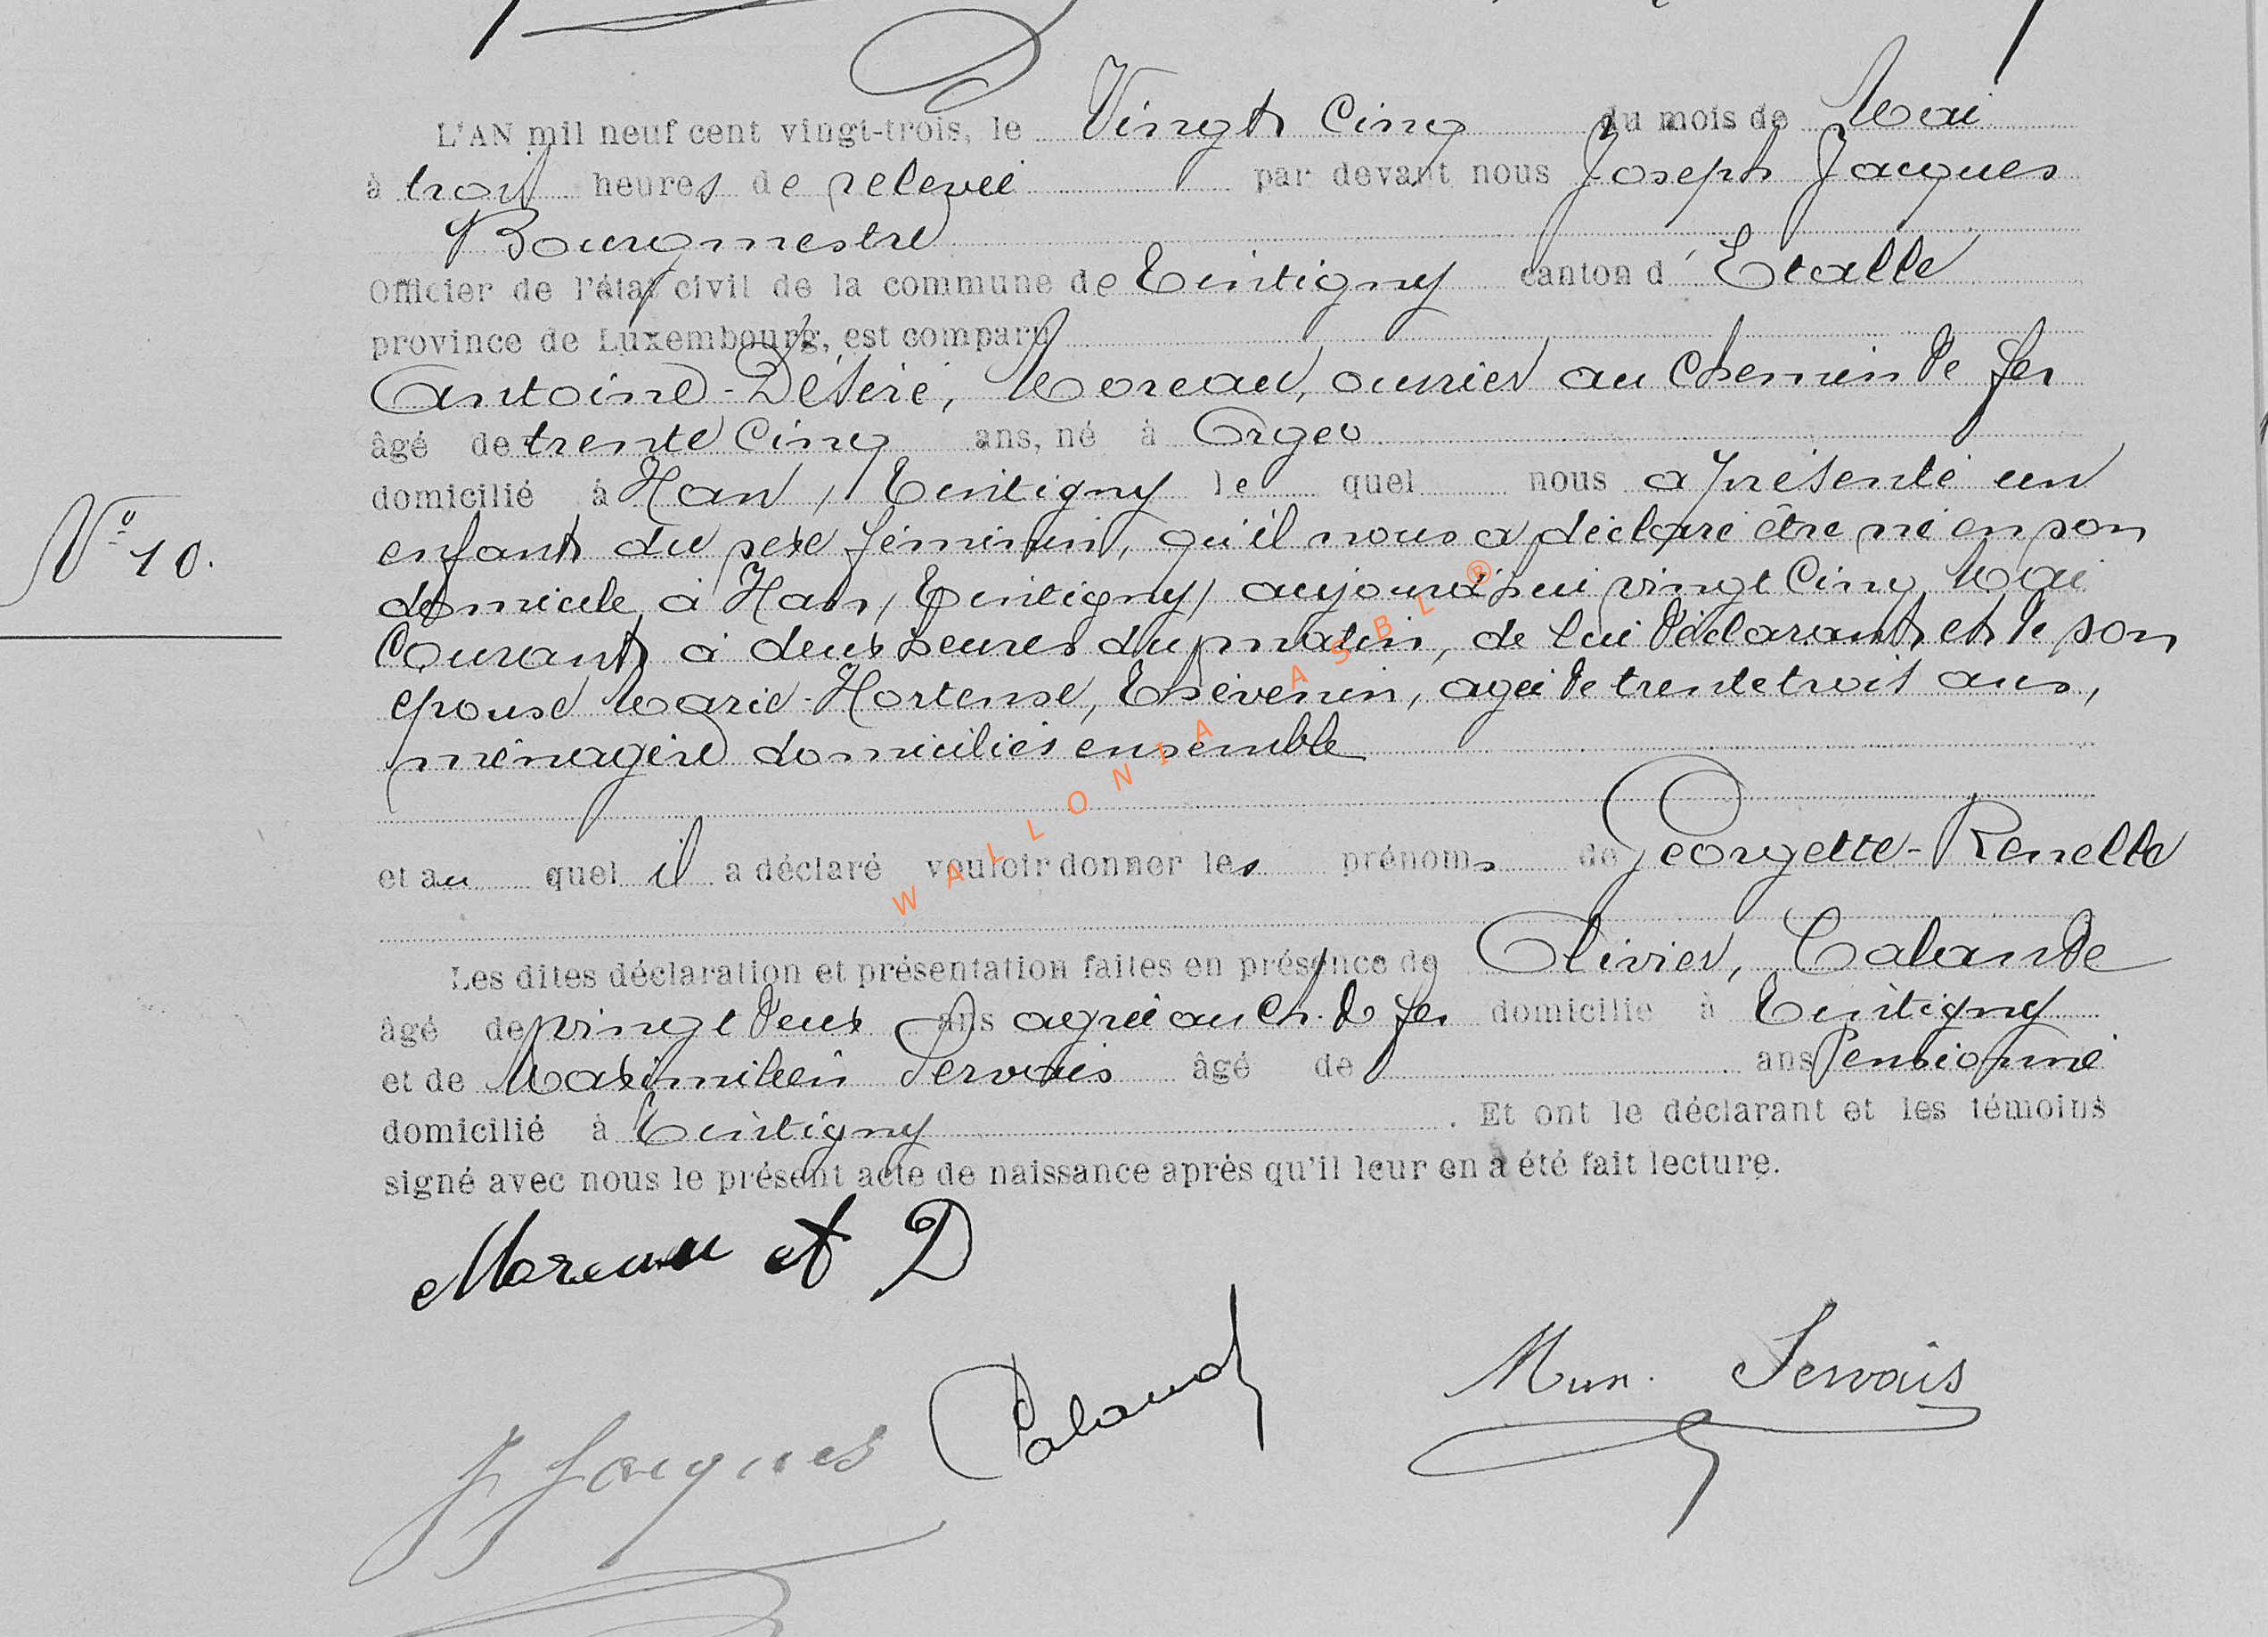 L'AN mil neuf cent vingt-trois, le Vingt Cinq du mois de Mai
à trois heures de relevée par devant nous Joseph Jacques
Bourgmestre
Officier de l'état civil de la commune de Tintigny canton d'Etalle
province de Luxembourg, est comparu
Antoine-Désiré, Moreau, ouvrier au chemin de fer
âgé de trente Cinq ans, né à Orgeo
domicilié à Han, Tintigny le quel nous a présenté un
N° 10.
enfant du sexe féminin, qu'il nous a déclaré être né en son
domicile à Han, Tintigny, aujourd'hui vingt Cinq Mai
Courant à deux heures du matin, de lui déclarant et de son
épouse Marie-Hortense, Thévenin, agée de trente trois ans,
ménagère domiciliés ensemble
et au quel il a déclaré vouloir donner les prénoms de Georgette-Renelle
Les dites déclaration et présentation faites en présence de Olivier, Calande
âgé de vingt deux ans agréé au Ch. de fer domicilié à Tintigny
et de Maximilien Servais âgé de ans Pensionné
domicilié à Tintigny . Et ont le déclarant et les témoins
signé avec nous le présent acte de naissance après qu'il leur en a été fait lecture.
Moreau et D
Servais
J Jacques
WALLONIA ASBL ®